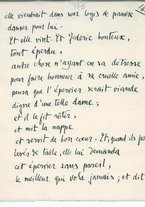 elle viendrait dans son logis de pauvre
danser pour lui :
Et elle vint. Et Federic honteux,
tout éperdu,
autre chose n'ayant en sa détresse
pour faire honneur à sa cruelle amie,
pensa que l'épervier serait viande
digne d'une telle dame ;
et il le fit rôtir,
et mit la nappe
et servit de bon cœur. Et, quand ils furent
levés de table, elle lui demanda
cet épervier sans pareil,
le meilleur qui vola jamais ; et dit